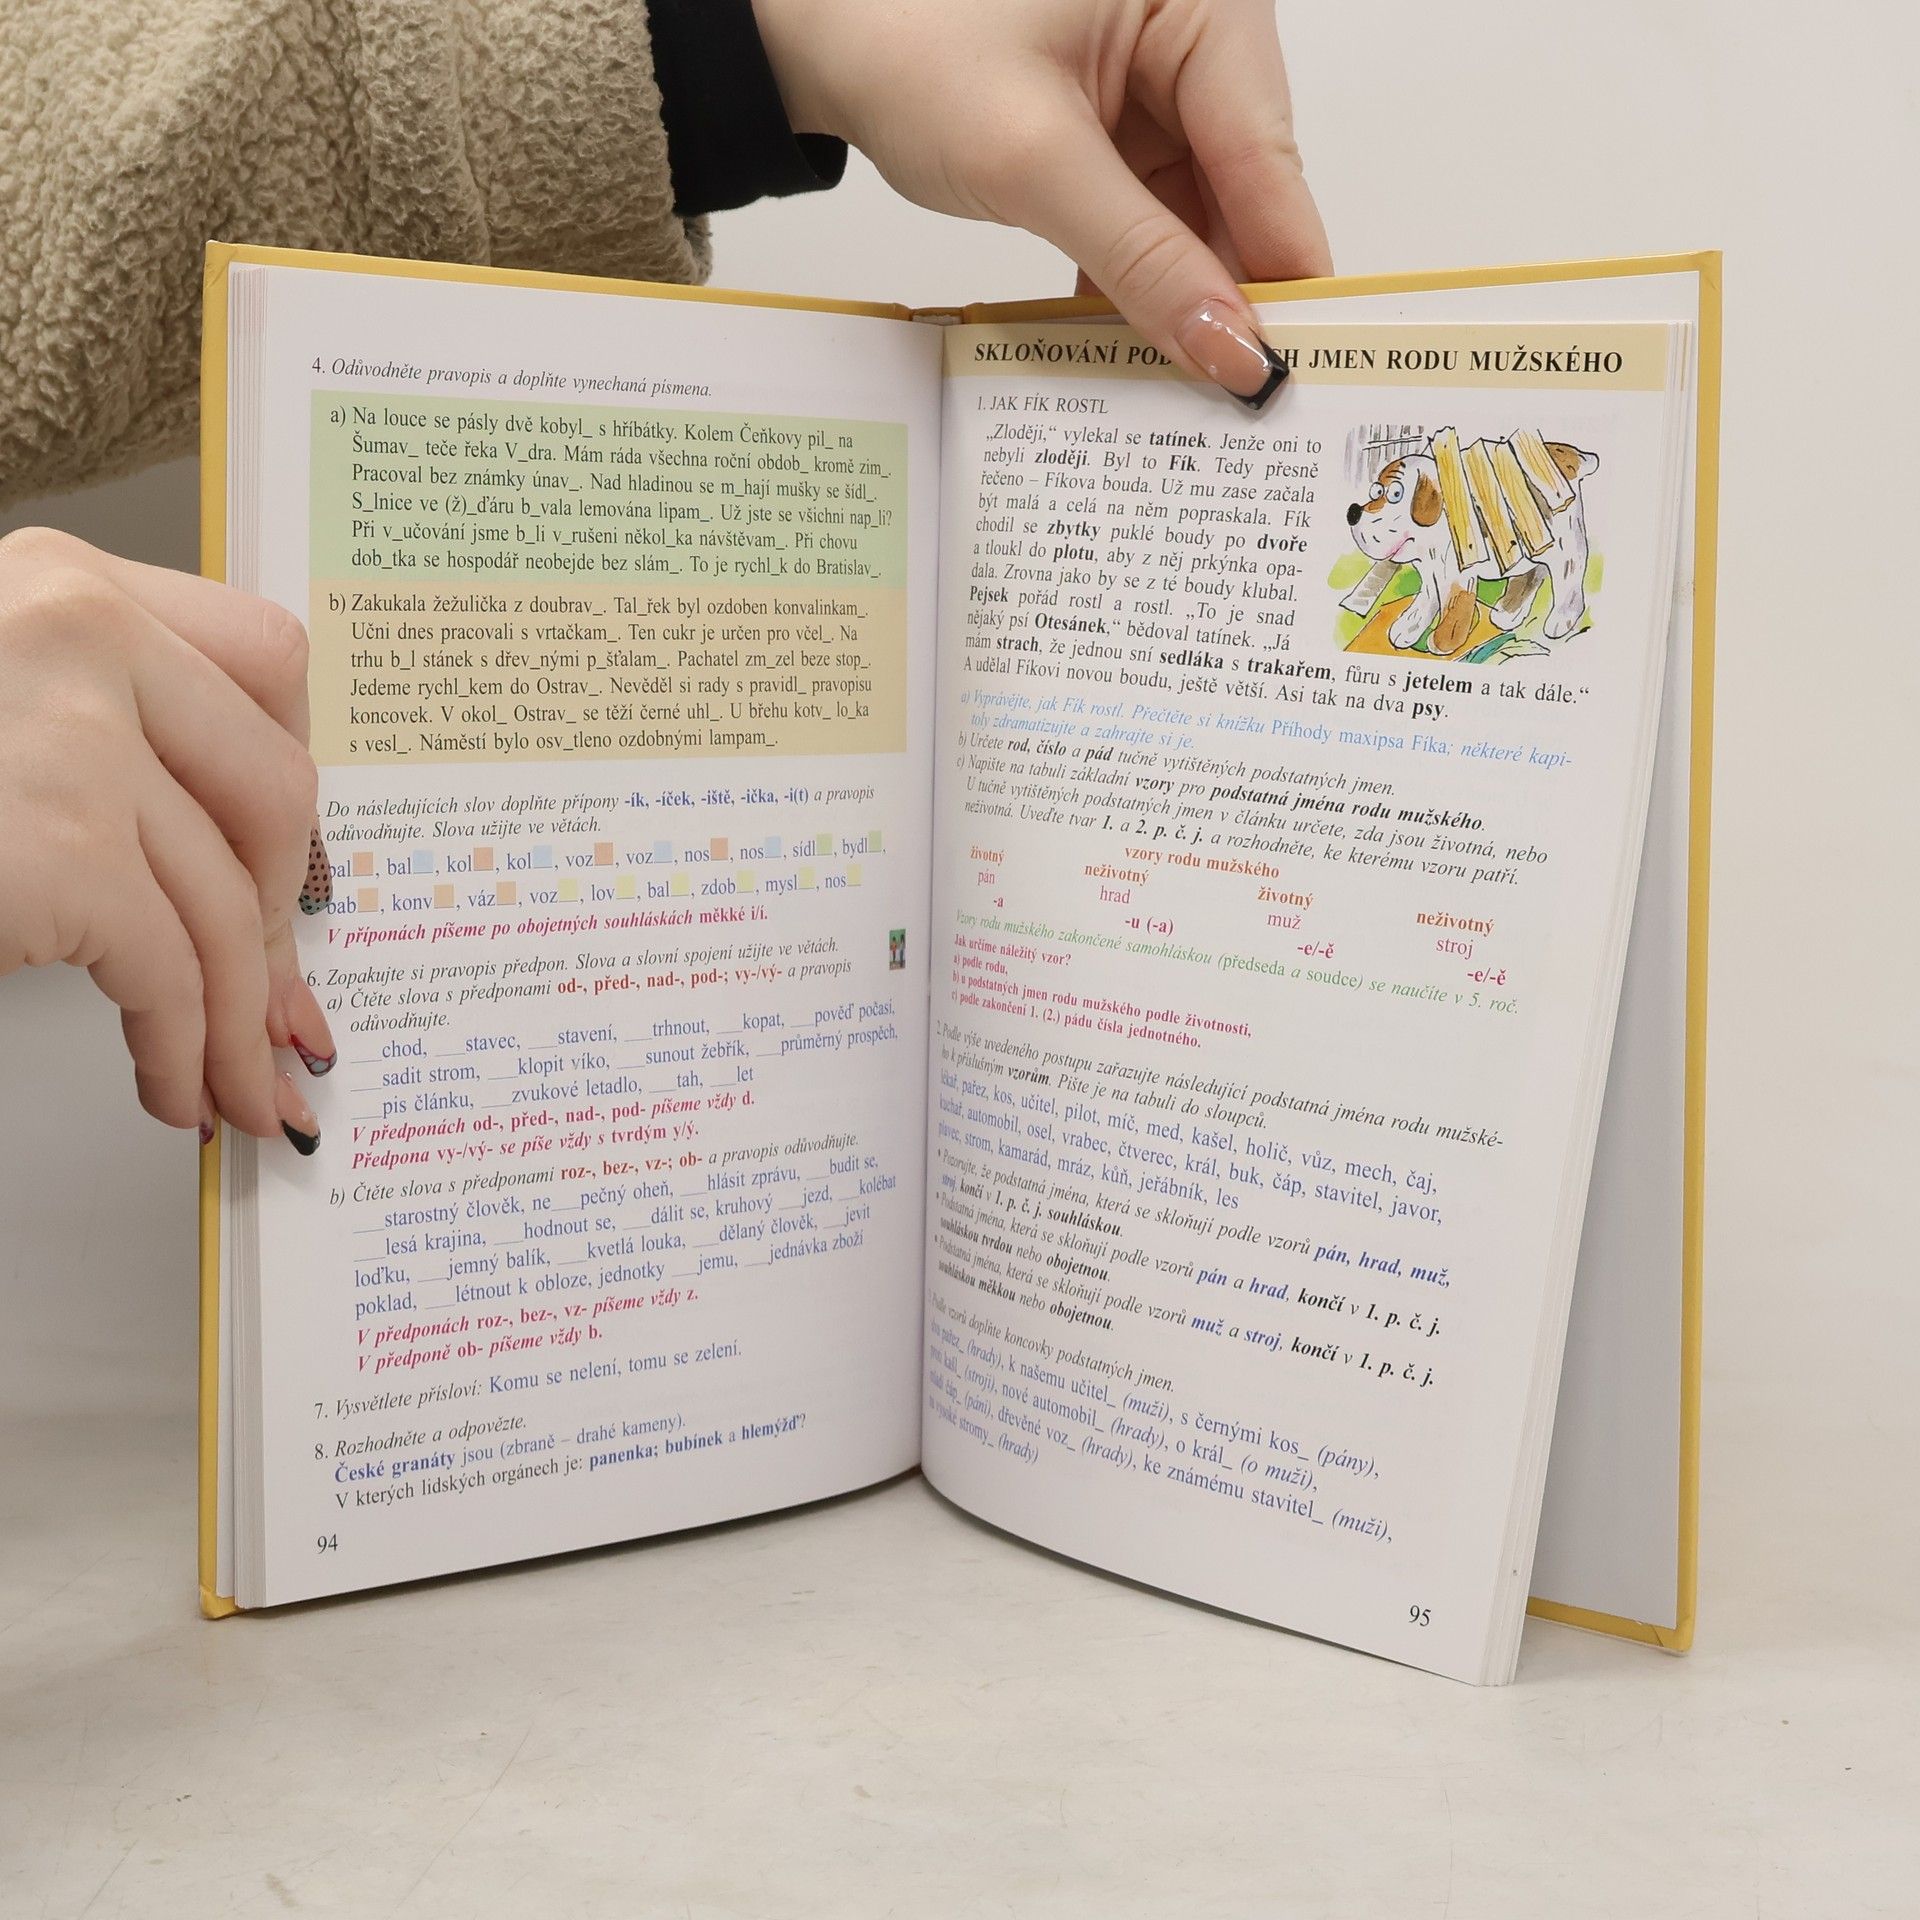 4. Odůvodněte pravopis a doplňte vynechaná písmena.
a) Na louce se pásly dvě kobyl_ s hříbátky. Kolem Čeňkovy pil_ na
Šumav_ teče řeka V_dra. Mám ráda všechna roční obdob_ kromě zim_.
Pracoval bez známky únav_. Nad hladinou se m_hají mušky se šídl_.
S_lnice ve (ž)_ďáru b_vala lemována lipam_. Už jste se všichni nap_li?
Při v_učování jsme b_li v_rušeni někol_ka návštěvam_. Při chovu
dob_tka se hospodář neobejde bez slám_. To je rychl_k do Bratislav_.
b) Zakukala žežulička z doubrav_. Tal_řek byl ozdoben konvalinkam_.
Učni dnes pracovali s vrtačkam_. Ten cukr je určen pro včel_. Na
trhu b_l stánek s dřev_nými p_šťalam_. Pachatel zm_zel beze stop_.
Jedeme rychl_kem do Ostrav_. Nevěděl si rady s pravidl_ pravopisu
koncovek. V okol_ Ostrav_ se těží černé uhl_. U břehu kotv_ lo_ka
s vesl_. Náměstí bylo osv_tleno ozdobnými lampam_.
Do následujících slov doplňte přípony -ík, -íček, -iště, -ička, -i(t) a pravopis
odůvodňujte. Slova užijte ve větách.
bal_, bal_, kol_, kol_, voz_, voz_, nos_, nos_, sídl_, bydl_,
bab_, konv_, váz_, voz_, lov_, bal_, zdob_, mysl_, nos_
V příponách píšeme po obojetných souhláskách měkké i/í.
6. Zopakujte si pravopis předpon. Slova a slovní spojení užijte ve větách.
a) Čtěte slova s předponami od-, před-, nad-, pod-; vy-/vý- a pravopis
odůvodňujte.
___chod, ___stavec, ___stavení, ___trhnout, ___kopat, ___pověď počasí,
___sadit strom, ___klopit víko, ___sunout žebřík, ___průměrný prospěch,
___pis článku, ___zvukové letadlo, ___tah, ___let
V předponách od-, před-, nad-, pod- píšeme vždy d.
Předpona vy-/vý- se píše vždy s tvrdým y/ý.
b) Čtěte slova s předponami roz-, bez-, vz-; ob- a pravopis odůvodňujte.
___starostný člověk, ne___pečný oheň, ___hlásit zprávu, ___budit se,
___lesá krajina, ___hodnout se, ___dálit se, kruhový ___jezd, ___kolébat
loďku, ___jemný balík, ___kvetlá louka, ___dělaný člověk, ___jevit
poklad, ___létnout k obloze, jednotky ___jemu, ___jednávka zboží
V předponách roz-, bez-, vz- píšeme vždy z.
V předponě ob- píšeme vždy b.
7. Vysvětlete přísloví: Komu se nelení, tomu se zelení.
8. Rozhodněte a odpovězte.
České granáty jsou (zbraně – drahé kameny).
V kterých lidských orgánech je: panenka; bubínek a hlemýžď?
94
SKLOŇOVÁNÍ POD CH JMEN RODU MUŽSKÉHO
1. JAK FÍK ROSTL
„Zloději,“ vylekal se tatínek. Jenže oni to
nebyli zloději. Byl to Fík. Tedy přesně
řečeno – Fíkova bouda. Už mu zase začala
být malá a celá na něm popraskala. Fík
chodil se zbytky puklé boudy po dvoře
a tloukl do plotu, aby z něj prkýnka opa-
dala. Zrovna jako by se z té boudy klubal.
Pejsek pořád rostl a rostl. „To je snad
nějaký psí Otesánek,“ bědoval tatínek. „Já
mám strach, že jednou sní sedláka s trakařem, fůru s jetelem a tak dále.“
A udělal Fíkovi novou boudu, ještě větší. Asi tak na dva psy.
a) Vyprávějte, jak Fík rostl. Přečtěte si knížku Příhody maxipsa Fíka; některé kapi-
toly zdramatizujte a zahrajte si je.
b) Určete rod, číslo a pád tučně vytištěných podstatných jmen.
c) Napište na tabuli základní vzory pro podstatná jména rodu mužského.
U tučně vytištěných podstatných jmen v článku určete, zda jsou životná, nebo
neživotná. Uveďte tvar 1. a 2. p. č. j. a rozhodněte, ke kterému vzoru patří.
vzory rodu mužského
životný neživotný životný neživotný
pán hrad muž stroj
-a -u (-a) -e/-ě -e/-ě
Vzory rodu mužského zakončené samohláskou (předseda a soudce) se naučíte v 5. roč.
Jak určíme náležitý vzor?
a) podle rodu,
b) u podstatných jmen rodu mužského podle životnosti,
c) podle zakončení 1. (2.) pádu čísla jednotného.
2. Podle výše uvedeného postupu zařazujte následující podstatná jména rodu mužské-
ho k příslušným vzorům. Pište je na tabuli do sloupců.
lékař, pařez, kos, učitel, pilot, míč, med, kašel, holič, vůz, mech, čaj,
kuchař, automobil, osel, vrabec, čtverec, král, buk, čáp, stavitel, javor,
plavec, strom, kamarád, mráz, kůň, jeřábník, les
• Pozorujte, že podstatná jména, která se skloňují podle vzorů pán, hrad, muž,
stroj, končí v 1. p. č. j. souhláskou.
• Podstatná jména, která se skloňují podle vzorů pán a hrad, končí v 1. p. č. j.
souhláskou tvrdou nebo obojetnou.
• Podstatná jména, která se skloňují podle vzorů muž a stroj, končí v 1. p. č. j.
souhláskou měkkou nebo obojetnou.
Podle vzorů doplňte koncovky podstatných jmen.
dva pařez_ (hrady), k našemu učitel_ (muži), s černými kos_ (pány),
proti kašl_ (stroji), nové automobil_ (hrady), o král_ (o muži),
mladí čáp_ (páni), dřevěné voz_ (hrady), ke známému stavitel_ (muži),
vysoké stromy_ (hrady)
95